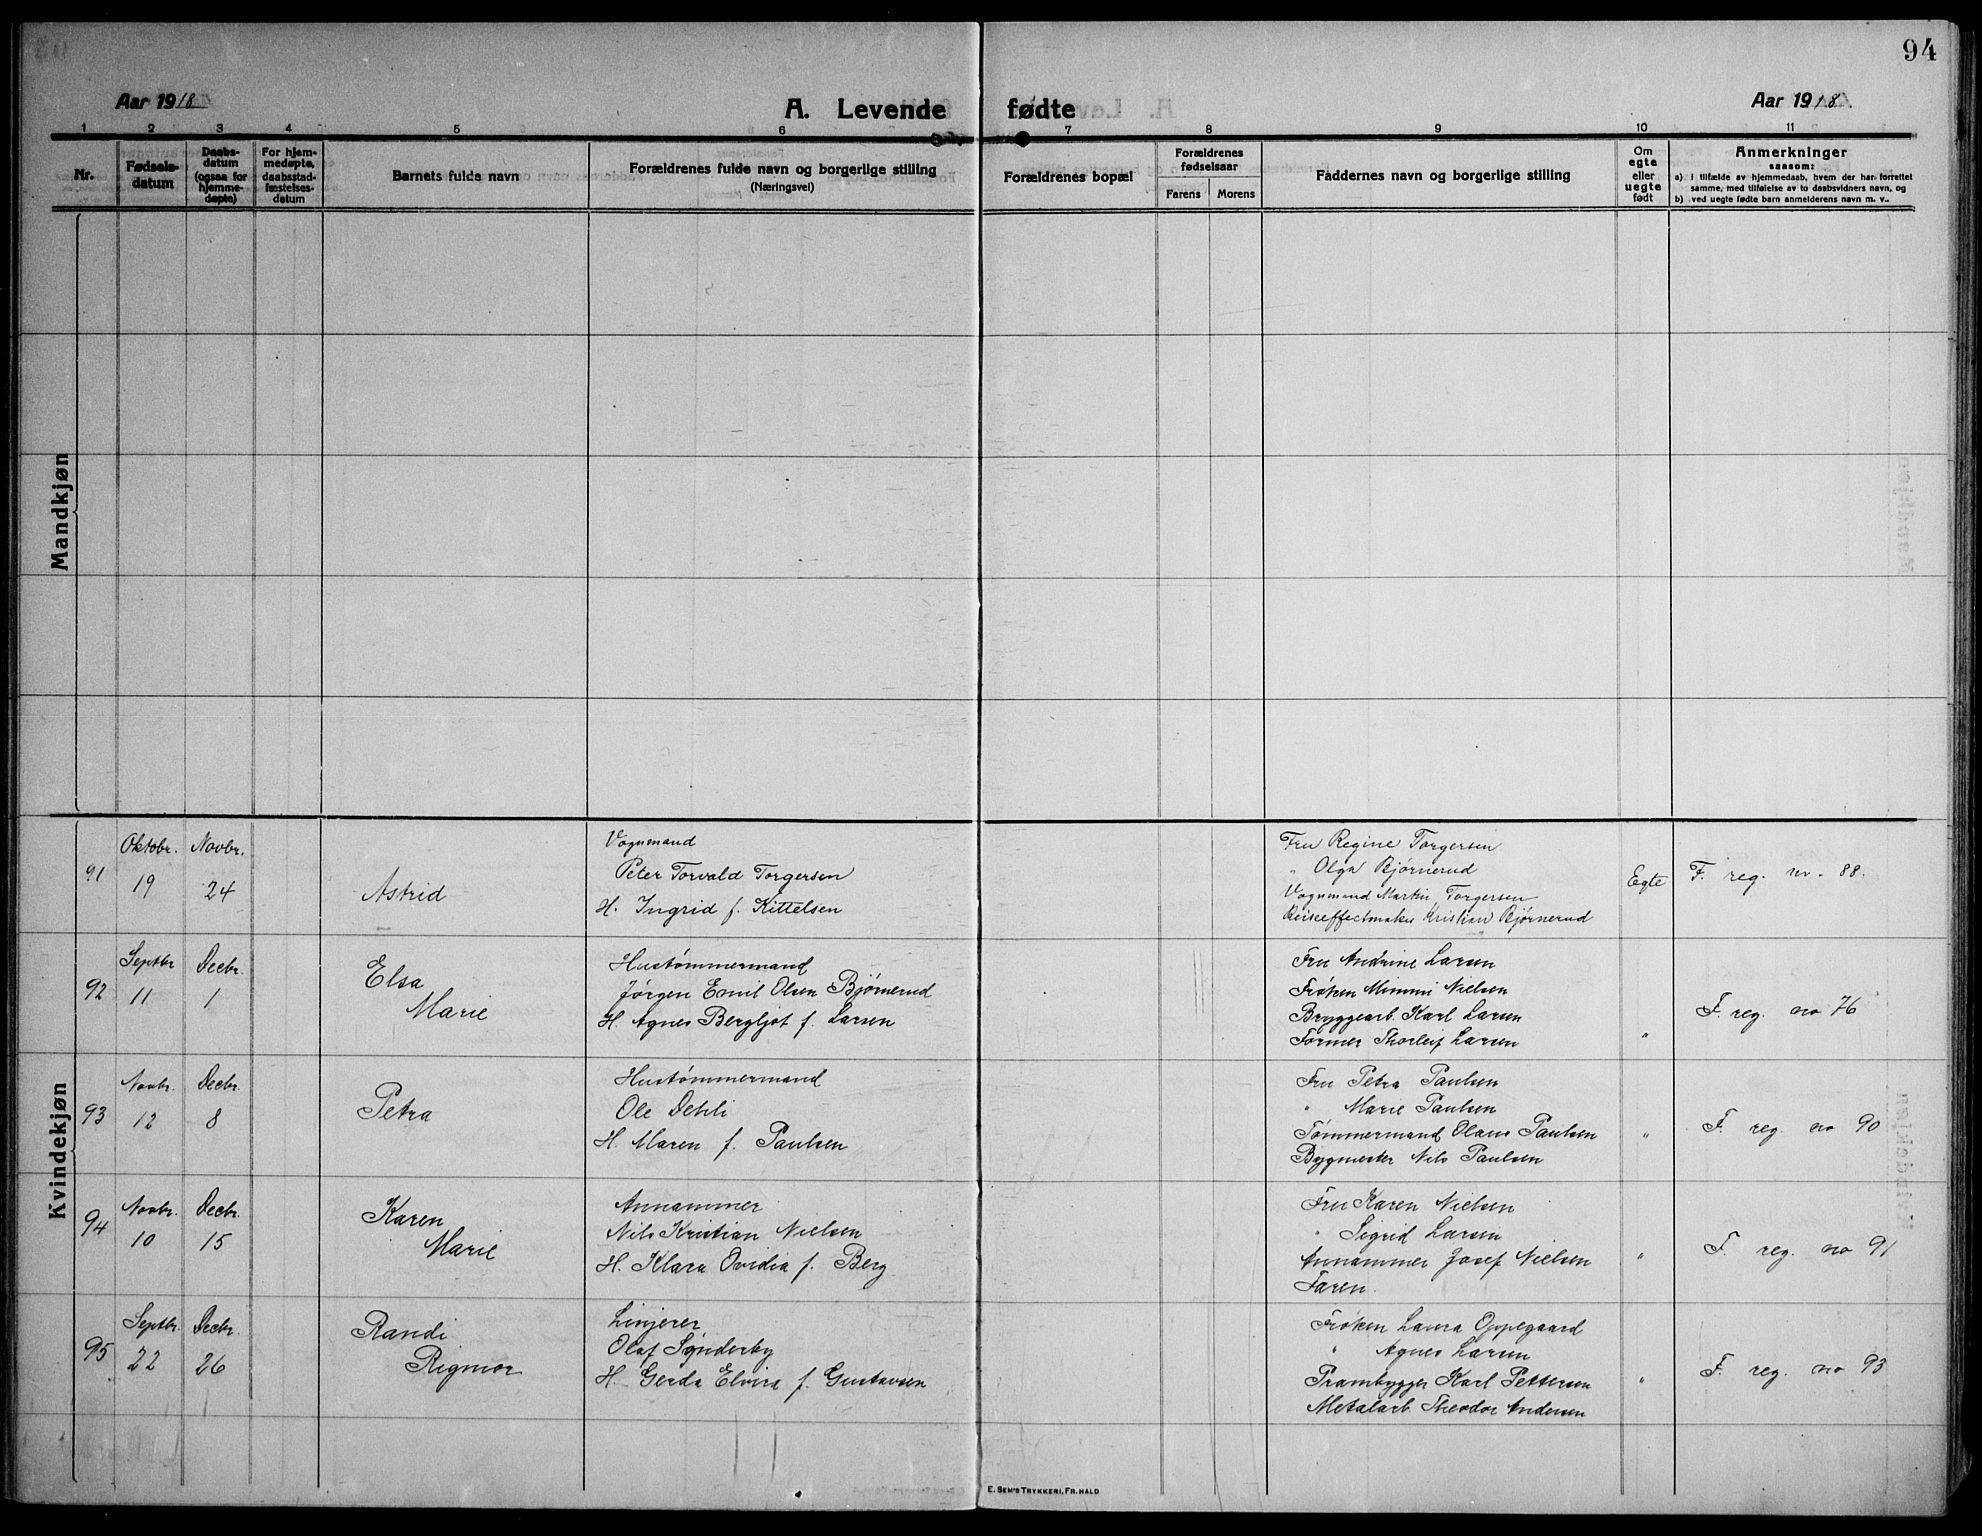 94
Aar 1918
A. Levende fødte
Aar 1918.
1 2 3 4 5 6 7 8 9 10 11
Nr.
Fødsels-
datum
Daabs-
datum
(ogsaa for
hjemme-
døpte)
For hjem-
medøpte,
daabsstad-
fæstelses-
datum
Barnets fulde navn
Forældrenes fulde navn og borgerlige stilling
(Næringsvei)
Forældrenes bopæl
Forældrenes
fødselsaar
Farens Morens
Faddernes navn og borgerlige stilling
Om
egte
eller
uegte
født
Anmerkninger
saasom:
a) I tilfælde av hjemmedaab, hvem der har forrettet
samme, med tilføielse av to daabsvidners navn, og
b) ved uegte fødte barn anmelderens navn m. v..
Mandkjøn
Kvindekjøn
91
Oktobr.
19
Novbr.
24
Astrid
Vognmand
Peter Torvald Torgersen
H. Ingrid f. Kittelsen
Fru Regine Torgersen
" Olga Bjørnerud
Vognmand Martin Torgersen
Reiseeffectmaker Kristian Bjørnerud
Egte
F. reg. nr. 88.
92
Septbr
11
Decbr.
1
Elsa
Marie
Hustømmermand
Jørgen Emil Olsen Bjørnerud
H. Agnes Bergljot f. Larsen
Fru Andrine Larsen
Frøken Mimmi Nielsen
Bryggearb. Karl Larsen
Former Thorleif Larsen
"
F. reg. no 76
93
Novbr.
12
Decbr.
8
Petra
Hustømmermand
Ole Dehli
H. Maren f. Paulsen
Fru Petra Paulsen
" Marie Paulsen
Tømmermand Olaus Paulsen
Bygmester Nils Paulsen
"
F. reg. no 90
94
Novbr.
10
Decbr.
15
Karen
Marie
Annammer
Nils Kristian Nielsen
H. Klara Ovidia f. Berg
Fru Karen Nielsen
" Sigrid Larsen
Annammer Josef Nielsen
Faren.
"
F. reg. no 91
95
Septbr.
22
Decbr.
26
Randi
Rigmor
Linjerer
Olaf Sønderby
H. Gerda Elvira f. Gustavsen
Frøken Laura Oppegaard
" Agnes Larsen
Prambygger Karl Pettersen
Metalarb. Theodor Andersen
"
F. reg. no 93
E. Sem's Trykkeri, Fr.hald